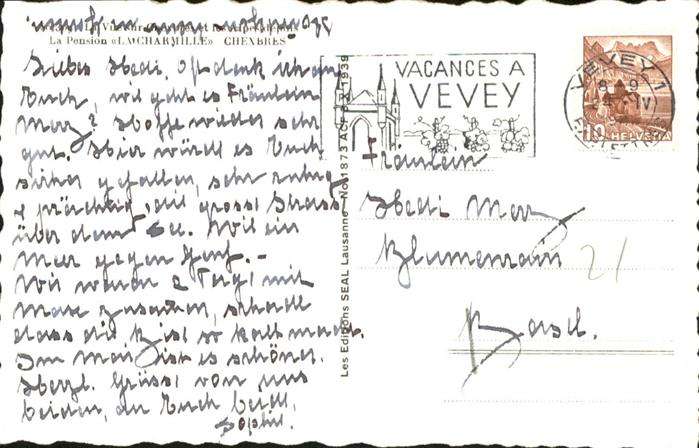 La Pension «LA CHARMILLE» CHEXBRES
Liebes Hedi, Oft denk ich an
Euch, wie geht es Fräulein
Merz? Hoffe wieder sehr
gut. Hier würdl es Euch
sicher gefallen, sehr ruhig
& prächtig, die grosse Strasse
über dem See. Wie ein
Meer gegen Genf. –
Wir waren 2 Tage mit
zusammen, schade
dass die Bise so kalt macht.
Im Mai ist es schöner.
Herzl. Grüsse von uns
beiden, an Euch beide,
Sophie.
Les Editions SEAL Lausanne - No. 1873 ACF 9.2.1939
VACANCES A
VEVEY
VEVEY 1
IV
10 HELVETIA
Fräulein
Hedi Merz
Blumenrain 21
Basel.